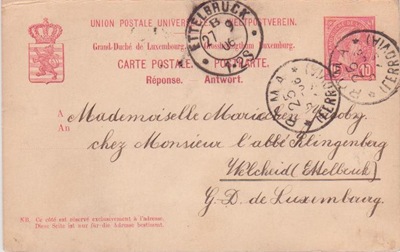 UNION POSTALE UNIVERSELLE WELTPOSTVEREIN.
Grand-Duché de Luxembourg. Luxemburg.
CARTE POSTALE. POSTKARTE.
Réponse. Antwort.
ETTELBRUCK
ROMA
ROMA
10
A
An
Mademoiselle Marie
chez Monsieur l'abbé Klingenberg
Welscheid (Ettelbruck)
G. D. de Luxembourg.
N.B. Ce côté est réservé exclusivement à l'adresse.
Diese Seite ist nur für die Adresse bestimmt.